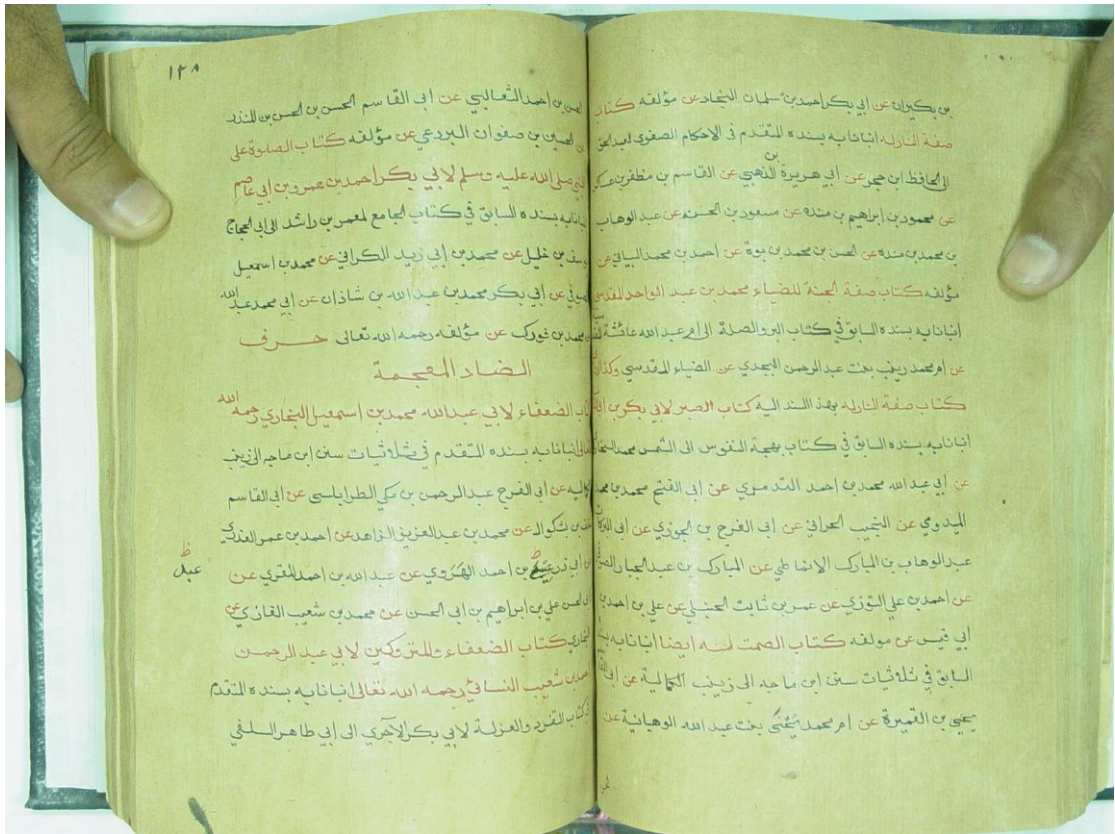 بن بكيران عن ابي بكر احمد بن سلمان النجاد عن مؤلفه كتاب
صفة النار له انبانا به بسنده المتقدم في الاحكام الصغرى لعبد الحق
الى الحافظ ابن حجر عن ابي هريرة بن الذهبي عن القاسم بن مظفر بن عساكر
عن محمود بن ابراهيم بن منده عن مسعود بن الحسن عن عبد الوهاب
بن محمد بن منده عن الحسن بن محمد بن بوة عن احمد بن محمد البياني عن
مؤلفه كتاب صفة الجنة للضياء محمد بن عبد الواحد المقدسي
انبانا به بسنده السابق في كتاب البر والصلة الى ام عبد الله عائشة
عن ام محمد زينب بنت عبد الرحمن البجدي عن الضياء المقدسي وكذا
كتاب صفة النار له بهذا السند اليه كتاب الصبر لابي بكر بن
انبانا به بسنده السابق في كتاب بهجة النفوس الى الشمس محمد
عن ابي عبد الله محمد بن احمد التدمري عن ابي الفتح محمد بن محمد
الميدومي عن النجيب الحراني عن ابي الفرج بن الجوزي عن ابي البركات
عبد الوهاب بن المبارك الانماطي عن المبارك بن عبد الجبار الصيرفي
عن احمد بن علي التوزي عن عمر بن ثابت الحنبلي عن علي بن احمد بن
ابي قيس عن مولفه كتاب الصمت له ايضا انبانا به بسنده
السابق في ثلاثيات سنن ابن ماجه الى زينب الكمالية عن ابي القاسم
يحيى بن القميرة عن ام محمد تجني بنت عبد الله الوهبانية عن
١٢٨
الحسين بن احمد الثعالبي عن ابي القاسم الحسن بن الحسن بن المنذر
عن الحسين بن صفوان البردعي عن مؤلفه كتاب الصلوة على
النبي صلى الله عليه وسلم لابي بكر احمد بن عمرو بن ابي عاصم
انبانا به بسنده السابق في كتاب الجامع لمعمر بن راشد الى ابي الحجاج
يوسف بن خليل عن محمد بن ابي زيد الكراني عن محمد بن اسمعيل
الصيرفي عن ابي بكر محمد بن عبد الله بن شاذان عن ابي محمد عبد الله
بن محمد بن فورك عن مؤلفه رحمه الله تعالى حرف
الضاد المعجمة
كتاب الضعفاء لابي عبد الله محمد بن اسمعيل البخاري رحمه الله
تعالى انبانا به بسنده المتقدم في ثلاثيات سنن ابن ماجه الى زينب
الكمالية عن ابي الفرج عبد الرحمن بن مكي الطرابلسي عن ابي القاسم
خلف بن بشكوال عن محمد بن عبد العزيز الزاهد عن احمد بن عمر العذري
عن ابي ذر بن احمد الهروي عن عبد الله بن احمد المقري عن
عبد
ابي الحسن علي بن ابراهيم بن ابي الحسن عن محمد بن شعيب الغازي عن
البخاري كتاب الضعفاء والمتروكين لابي عبد الرحمن
احمد بن شعيب النسائي رحمه الله تعالى انبانا به بسنده المتقدم
في كتاب التفرد والعزلة لابي بكر الآجري الى ابي طاهر السلفي